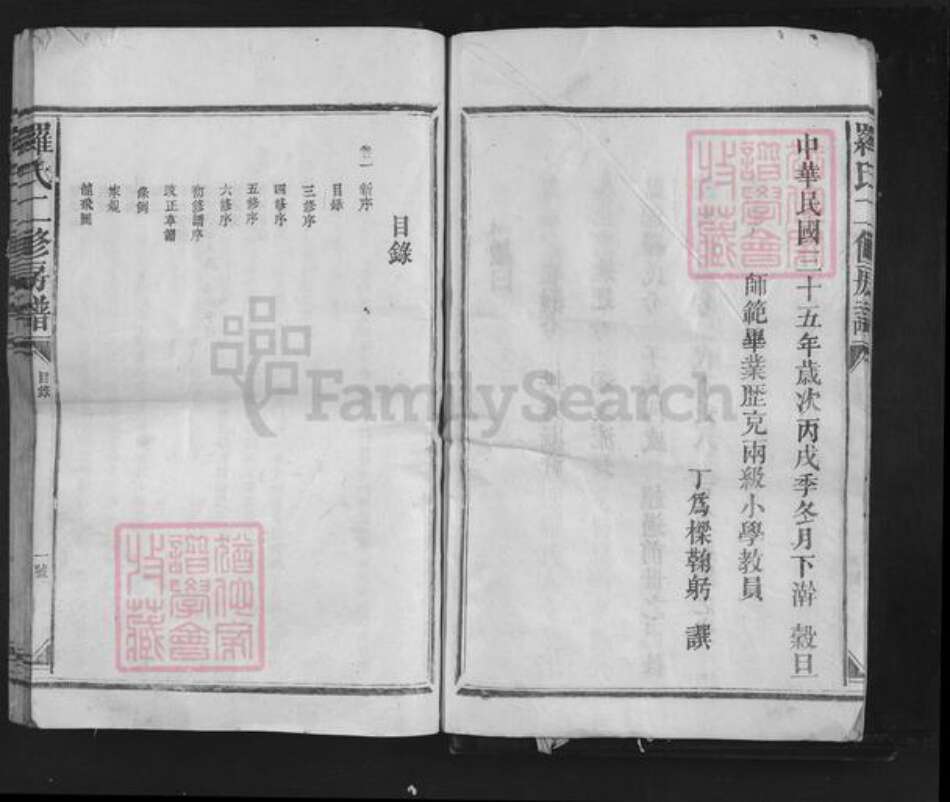 中華民國三十五年歲次丙戌季冬月下澣 穀旦
師範畢業歷充兩級小學教員
丁爲樑鞠躬 譔
目錄
卷一 新序
目錄
三修序
四修序
五修序
六修序
初修譜序
改正草譜
條例
家規
羅氏二修房譜
目錄
一號
FamilySearch
譜學會
收藏